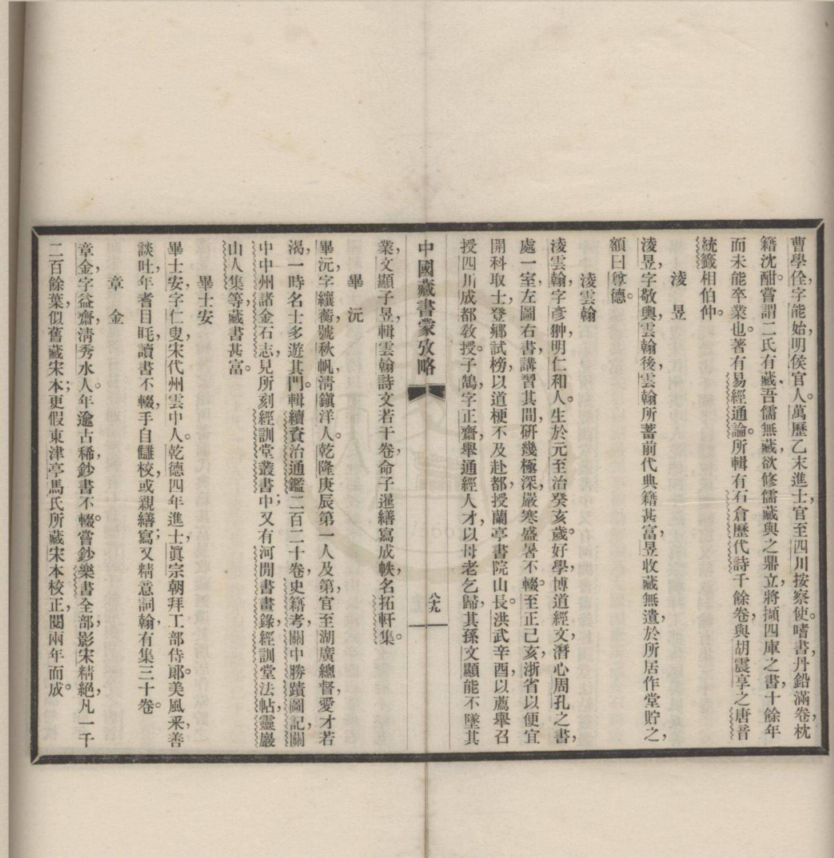 曹學佺，字能始，明侯官人。萬歷乙未進士，官至四川按察使。嗜書，丹鉛滿卷，枕
籍沈酣。嘗謂二氏有藏，吾儒無藏，欲修儒藏與之鼎立，將擷四庫之書，十餘年
而未能卒業也。著有易經通論。所輯有石倉歷代詩千餘卷，與胡震亨之唐音
統籤相伯仲。
淩　昱
淩昱字敬輿，雲翰後，雲翰所蓄前代典籍甚富，昱收藏無遺，於所居作堂貯之，
額曰尊德。
淩雲翰
淩雲翰，字彥翀，明仁和人。生於元至治癸亥歲。好學博道經文，潛心周孔之書，
處一室，左圖右書，講習其間，研幾極深，嚴寒盛暑不輟。至正己亥，浙省以便宜
開科取士，登鄉試榜，以道梗不及赴都，授蘭亭書院山長。洪武辛酉，以薦舉召
授四川成都教授。子鵠，字正齋，舉通經人才，以母老乞歸，其孫文顯能不墜其
中國藏書家攷略
八九
業，文顯子昱，輯雲翰詩文若干卷，命子暹繕寫成帙，名拓軒集。
畢　沅
畢沅字纕蘅，號秋帆，淸鎭洋人。乾隆庚辰第一人及第，官至湖廣總督，愛才若
渴，一時名士多遊其門。輯續資治通鑑二百二十卷，史籍考，關中勝蹟圖記，關
中中州諸金石志；兄所刻經訓堂叢書中；又有河間書畫錄，經訓堂法帖，靈巖
山人集等，藏書甚富。
畢士安
畢士安，字仁叟，宋代州雲中人。乾德四年進士，眞宗朝拜工部侍郎。美風采，善
談吐，年耆目眊，讀書不輟，手自讎校，或親繕寫；又精意詞翰，有集三十卷。
章　金
章金字益齋，淸秀水人。年逾古稀，鈔書不輟。嘗鈔樂書全部，影宋精絕，凡一千
二百餘葉，似舊藏宋本；更假東津亭馬氏所藏宋本校正，閱兩年而成。